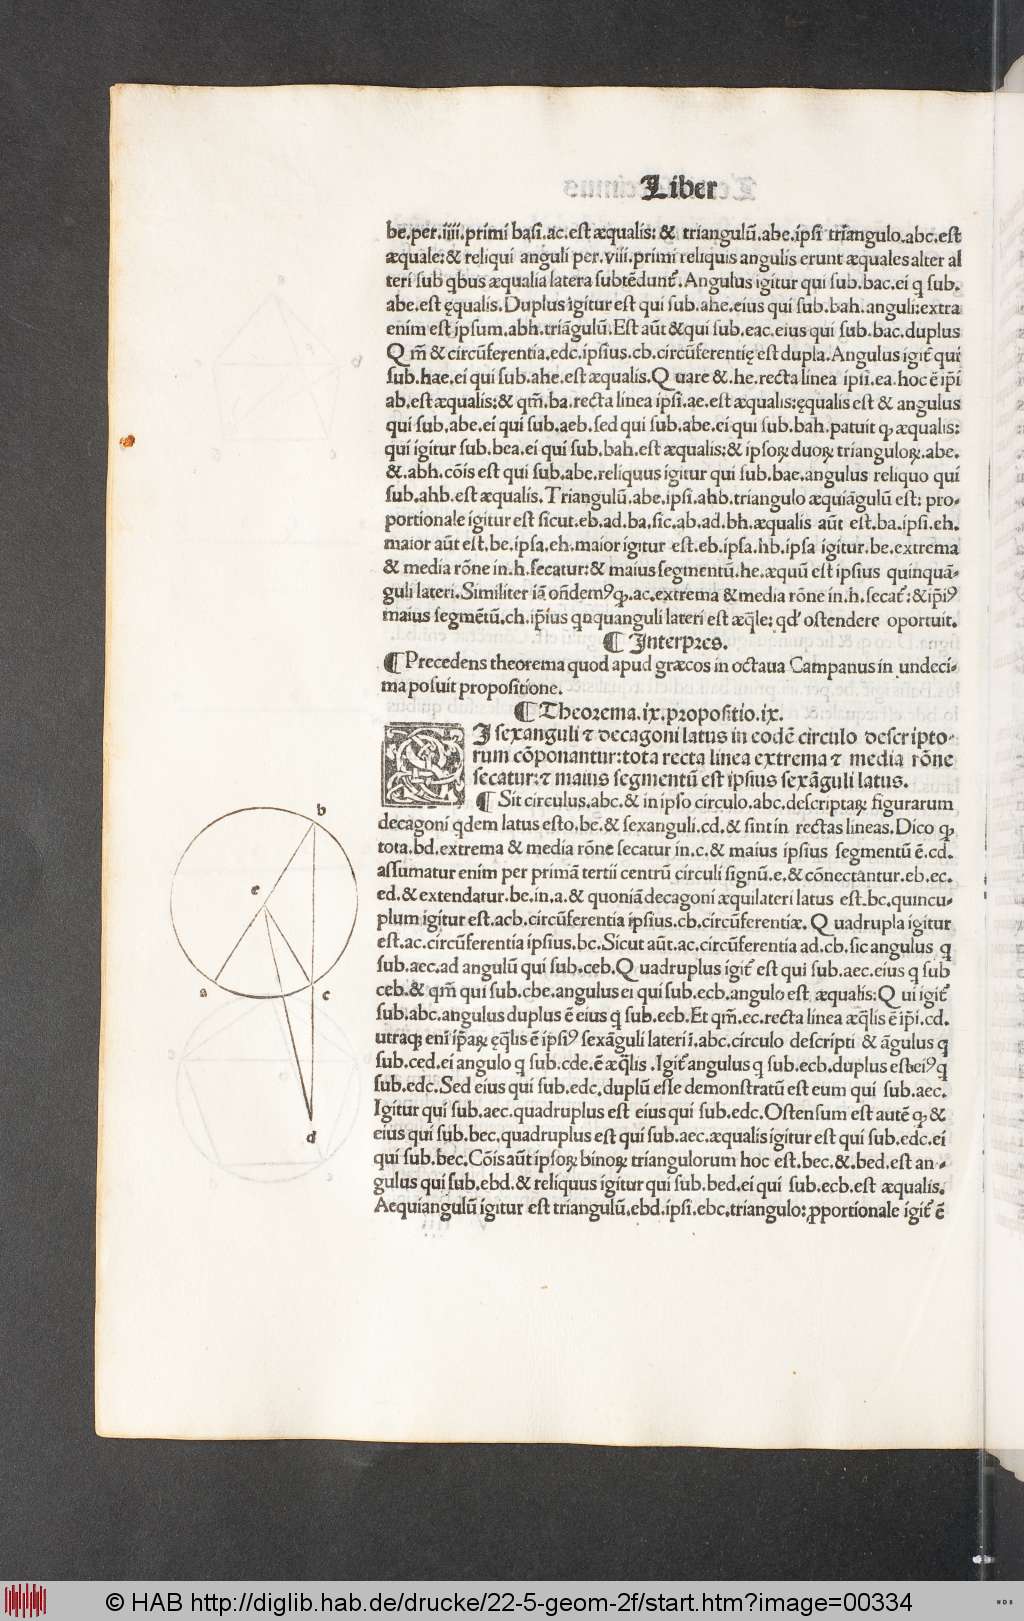 Liber
be.per.iiii.primi basi.ac.est æqualis: & triangulũ.abe.ipsi triangulo.abc.est
æquale: & reliqui anguli per.viii.primi reliquis angulis erunt æquales alter al
teri sub qbus æqualia latera subtẽdunt᷑. Angulus igitur qui sub.bac.ei q sub.
abe.est ęqualis. Duplus igitur est qui sub.ahe.eius qui sub.bah.anguli: extra
enim est ipsum.abh.triãgulũ. Est aũt & qui sub.eac.eius qui sub.bac.duplus
Q m̃ & circũferentia.edc.ipsius.cb.circũferentię est dupla. Angulus igit᷑ qui
sub.hae.ei qui sub.ahe.est æqualis. Q uare &.he.recta linea ipsi.ea.hoc ẽ ip̃i
ab.est æqualis: & qm̃.ba.recta linea ipsi.ae.est æqualis: ęqualis est & angulus
qui sub.abe.ei qui sub.aeb.sed qui sub.abe.ei qui sub.bah.patuit ꝙ æqualis:
qui igitur sub.bea.ei qui sub.bah.est æqualis: & ipsoꝝ duoꝝ trianguloꝝ.abe.
&.abh.cõis est qui sub.abe.reliquus igitur qui sub.bae.angulus reliquo qui
sub.ahb.est æqualis. Triangulũ.abe.ipsi.ahb.triangulo æquiãgulũ est: pro-
portionale igitur est sicut.eb.ad.ba.sic.ab.ad.bh.æqualis aũt est.ba.ipsi.eh.
maior aũt est.be.ipsa.eh.maior igitur est.eb.ipsa.hb.ipsa igitur.be.extrema
& media rõne in.h.secatur: & maius segmentũ.he.æquũ est ipsius quinquã-
guli lateri. Similiter iã oñdemꝰ ꝙ.ac.extrema & media rõne in.h.secat᷑: & ip̃iꝰ
maius segmẽtũ.ch.ip̃ius qnquanguli lateri est æq̃le: qd' ostendere oportuit.
¶ Interpres.
¶ Precedens theorema quod apud græcos in octaua Campanus in undeci-
ma posuit propositione.
¶ Theorema.ix.propositio.ix.
SI sexanguli ⁊ decagoni latus in eodẽ circulo descripto-
rum cõponantur: tota recta linea extrema ⁊ media rõne
secatur: ⁊ maius segmentũ est ipsius sexãguli latus.
¶ Sit circulus.abc.& in ipso circulo.abc.descriptaꝝ figurarum
decagoni qdem latus esto.bc.& sexanguli.cd.& sint in rectas lineas. Dico ꝙ
tota.bd.extrema & media rõne secatur in.c.& maius ipsius segmentũ ẽ.cd.
assumatur enim per primã tertii centrũ circuli signũ.e.& cõnectantur.eb.ec.
ed.& extendatur.be.in.a.& quoniã decagoni æquilateri latus est.bc.quincu-
plum igitur est.acb.circũferentia ipsius.cb.circũferentiæ. Q uadrupla igitur
est.ac.circũferentia ipsius.bc. Sicut aũt.ac.circũferentia ad.cb.sic angulus q
sub.aec.ad angulũ qui sub.ceb. Q uadruplus igit᷑ est qui sub.aec.eius q sub
ceb.& qm̃ qui sub.cbe.angulus ei qui sub.ecb.angulo est æqualis: Q ui igit᷑
sub.abc.angulus duplus ẽ eius q sub.ecb. Et qm̃.ec.recta linea æq̃lis ẽ ip̃i.cd.
utraqꝫ eni ip̃aꝝ ęq̃lis ẽ ipsiꝰ sexãguli lateri ĩ.abc.circulo descripti & ãgulus q
sub.ced.ei angulo q sub.cde.ẽ æq̃lis. Igit᷑ angulus q sub.ecb.duplus est eiꝰ q
sub.edc. Sed eius qui sub.edc.duplũ esse demonstratũ est eum qui sub.aec.
Igitur qui sub.aec.quadruplus est eius qui sub.edc. Ostensum est autẽ ꝙ &
eius qui sub.bec.quadruplus est qui sub.aec.æqualis igitur est qui sub.edc.ei
qui sub.bec. Cõis aũt ipsoꝝ binoꝝ triangulorum hoc est.bec.&.bed.est an-
gulus qui sub.ebd.& reliquus igitur qui sub.bed.ei qui sub.ecb.est æqualis.
Aequiangulũ igitur est triangulũ.ebd.ipsi.ebc.triangulo: ꝓportionale igit᷑ ẽ
b
e
a
c
d
© HAB http://diglib.hab.de/drucke/22-5-geom-2f/start.htm?image=00334